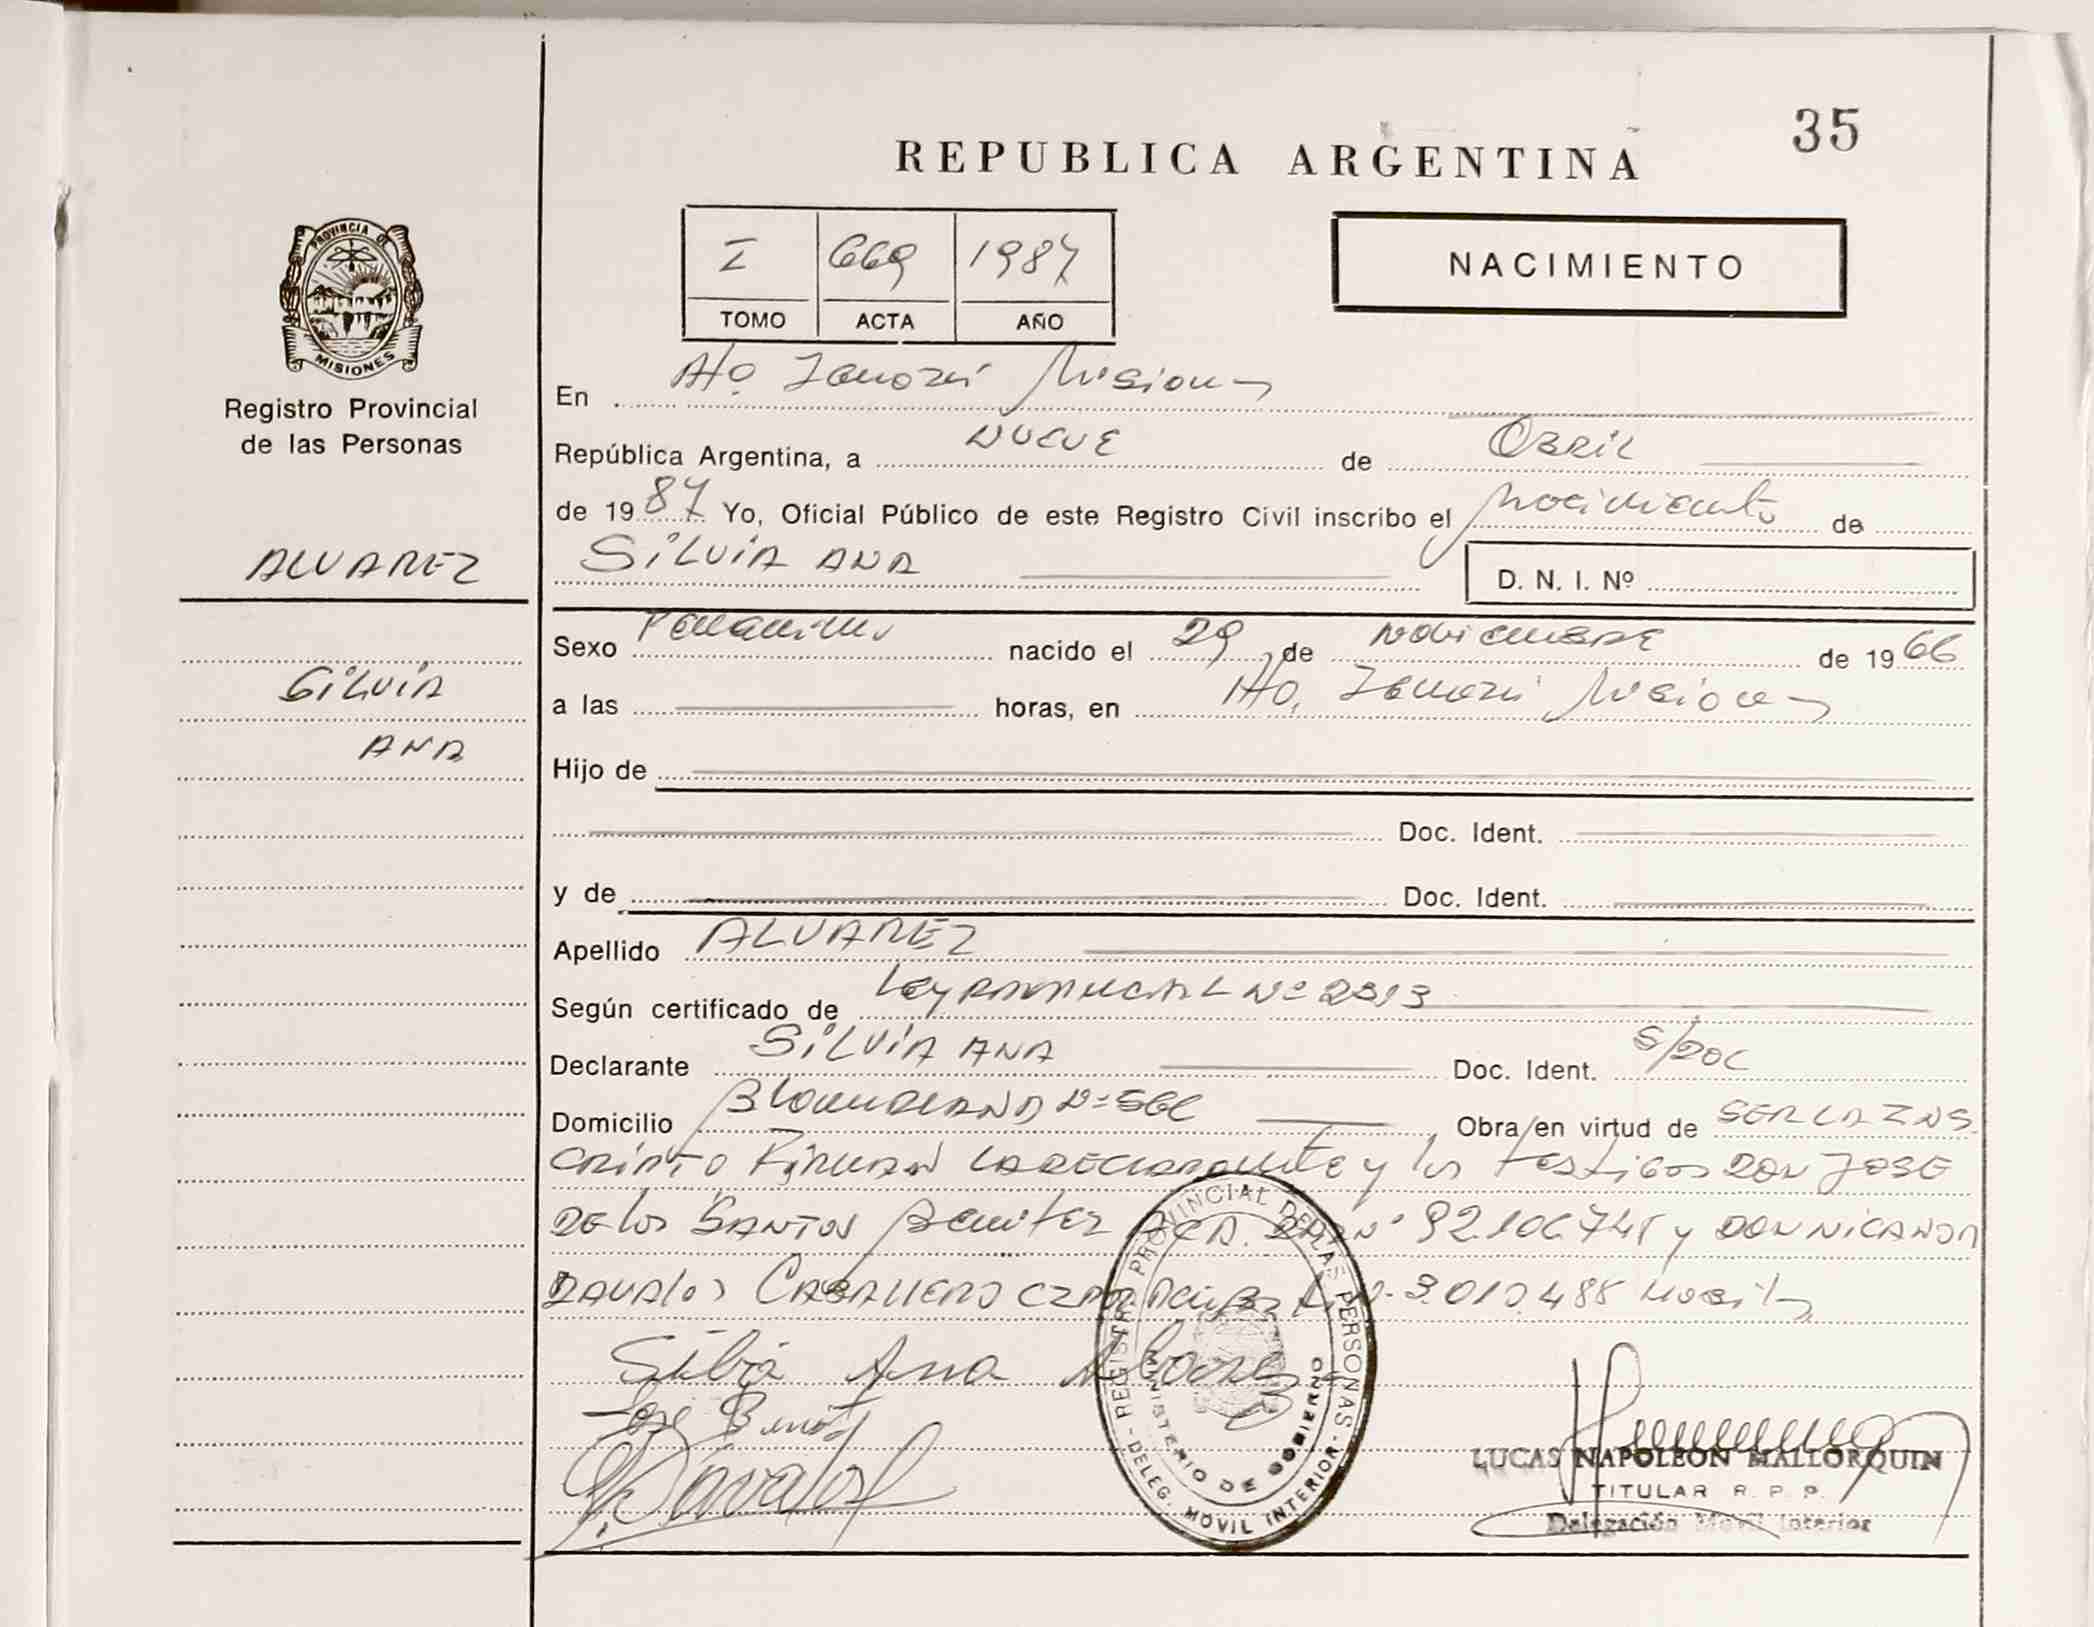 35
REPUBLICA ARGENTINA
PROVINCIA DE
MISIONES
Registro Provincial
de las Personas
I 669 1987
TOMO ACTA AÑO
NACIMIENTO
En Pto. Misiones
República Argentina, a NUEVE de Abril
de 1987 Yo, Oficial Público de este Registro Civil inscribo el Nacimiento de
ALVAREZ
SILVIA ANA D. N. I. Nº
Sexo Femenino nacido el 29 de Noviembre de 1966
SILVIA
a las horas, en Pto. Misiones
ANA
Hijo de
Doc. Ident.
y de Doc. Ident.
Apellido ALVAREZ
Según certificado de Ley PROVINCIAL Nº 2313
Declarante SILVIA ANA Doc. Ident. S/DOC
Domicilio Obra en virtud de SER LA INS
CRIPTO FIRMAN LA DECLARANTE y los testigos DON JOSE
DE los SANTOS Benitez Nº 92.106.745 y DON NICANOR
DAVALOS CABALLERO 3.010.488
Silvia Ana Alvarez
José Benitez
Davalos
REGISTRO PROVINCIAL DE LAS PERSONAS
MINISTERIO DE GOBIERNO
- DELEG. MOVIL INTERIOR -
LUCAS NAPOLEON MALLORQUIN
TITULAR R. P. P.
Delegación Movil Interior